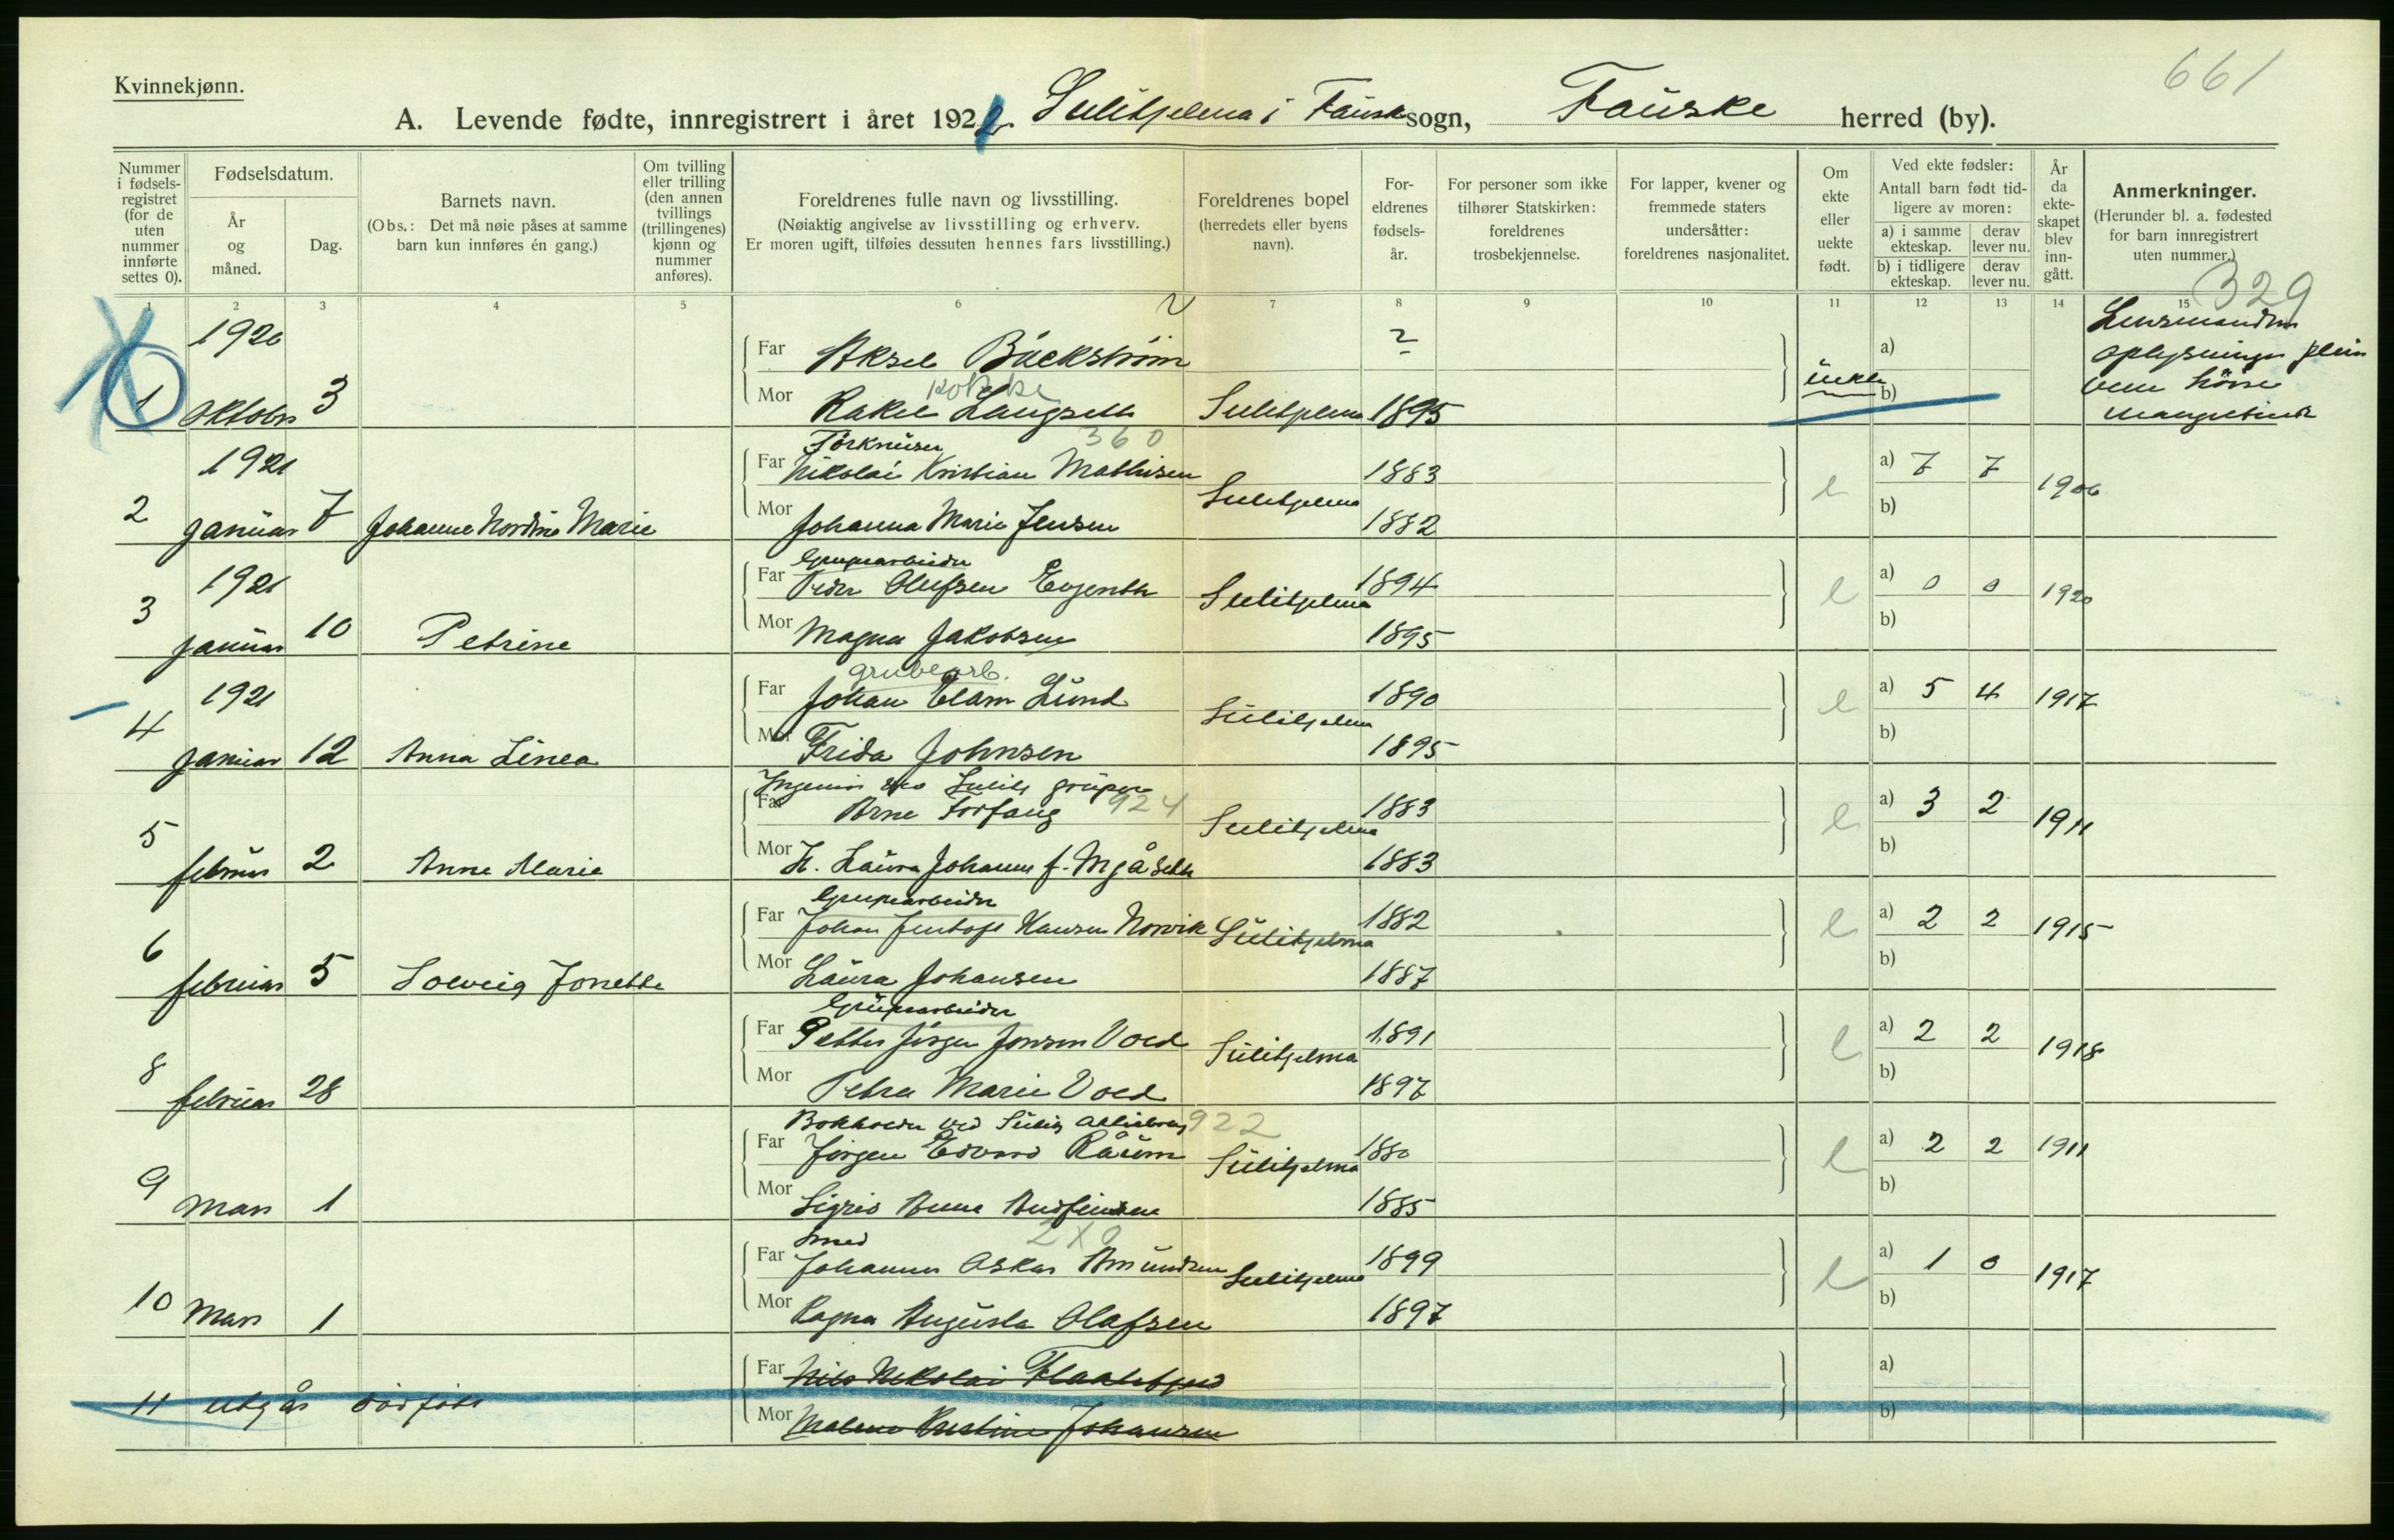 661
Kvinnekjønn.
A. Levende fødte, innregistrert i året 1922. Sulitjelma i Fausk sogn, Fauske herred (by).
Nummer i fødsels-registret (for de uten nummer innførte settes 0).
Fødselsdatum.
År og måned.
Dag.
Barnets navn.
(Obs.: Det må nøie påses at samme barn kun innføres én gang.)
Om tvilling eller trilling (den annen tvillings (trillingenes) kjønn og nummer anføres).
Foreldrenes fulle navn og livsstilling.
(Nøiaktig angivelse av livsstilling og erhverv.
Er moren ugift, tilføies dessuten hennes fars livsstilling.)
Foreldrenes bopel (herredets eller byens navn).
For-eldrenes fødsels-år.
For personer som ikke tilhører Statskirken: foreldrenes trosbekjennelse.
For lapper, kvener og fremmede staters undersåtter: foreldrenes nasjonalitet.
Om ekte eller uekte født.
Ved ekte fødsler:
Antall barn født tid-ligere av moren:
a) i samme ekteskap.
derav lever nu.
b) i tidligere ekteskap.
derav lever nu.
År da ekte-skapet blev inn-gått.
Anmerkninger.
(Herunder bl. a. fødested for barn innregistrert uten nummer.)
329
1 2 3 4 5 6 7 8 9 10 11 12 13 14 15
1920
Far Aksel Bäckström ? a)
1 oktober 3 Mor Rakel Langseth Sulitjelma 1895 uekte b)
Lensmanden
oplysninger
360
1921
Far Nikolai Kristian Mathisen Sulitjelma 1883 e a) 7 7 1906
2 januar 7 Johanne Nordine Marie Mor Johanna Marie Jensen 1882 b)
Grubearbeider
1921
Far Peder Olufsen Evjenth Sulitjelma 1894 e a) 0 0 1920
3 januar 10 Petrine Mor Magna Jakobsen 1895 b)
grubearb.
1921
Far Johan Elam Lund Sulitjelma 1890 e a) 5 4 1917
4 januar 12 Anna Linea Mor Frida Johnsen 1895 b)
Ingeniør ved Sulit gruper
Far Arne Forfang 924 Sulitjelma 1883 e a) 3 2 1911
5 februar 2 Anne Marie Mor H. Laura Johanne f. Mjåseth 1883 b)
Grupearbeider
Far Johan Jentoft Hansen Norvik Sulitjelma 1882 e a) 2 2 1915
6 februar 5 Solveig Jonette Mor Laura Johansen 1887 b)
Grupearbeider
Far Petter Jørgen Jonsen Vold Sulitjelma 1891 e a) 2 2 1918
8 februar 28 Mor Petra Marie Vold 1897 b)
Bokholder ved Sulitj 922
Far Jørgen Edvard Råum Sulitjelma 1880 e a) 2 2 1911
9 Mars 1 Mor Sigrid Anna 1885 b)
Smed
Far Johannes Oskar Amundsen Sulitjelma 1899 e a) 1 0 1917
10 Mars 1 Mor Ragna Augusta Olafsen 1897 b)
Far Nils Nikolai a)
11 utgår dødfødt Mor Malene Kristine Johansen b)